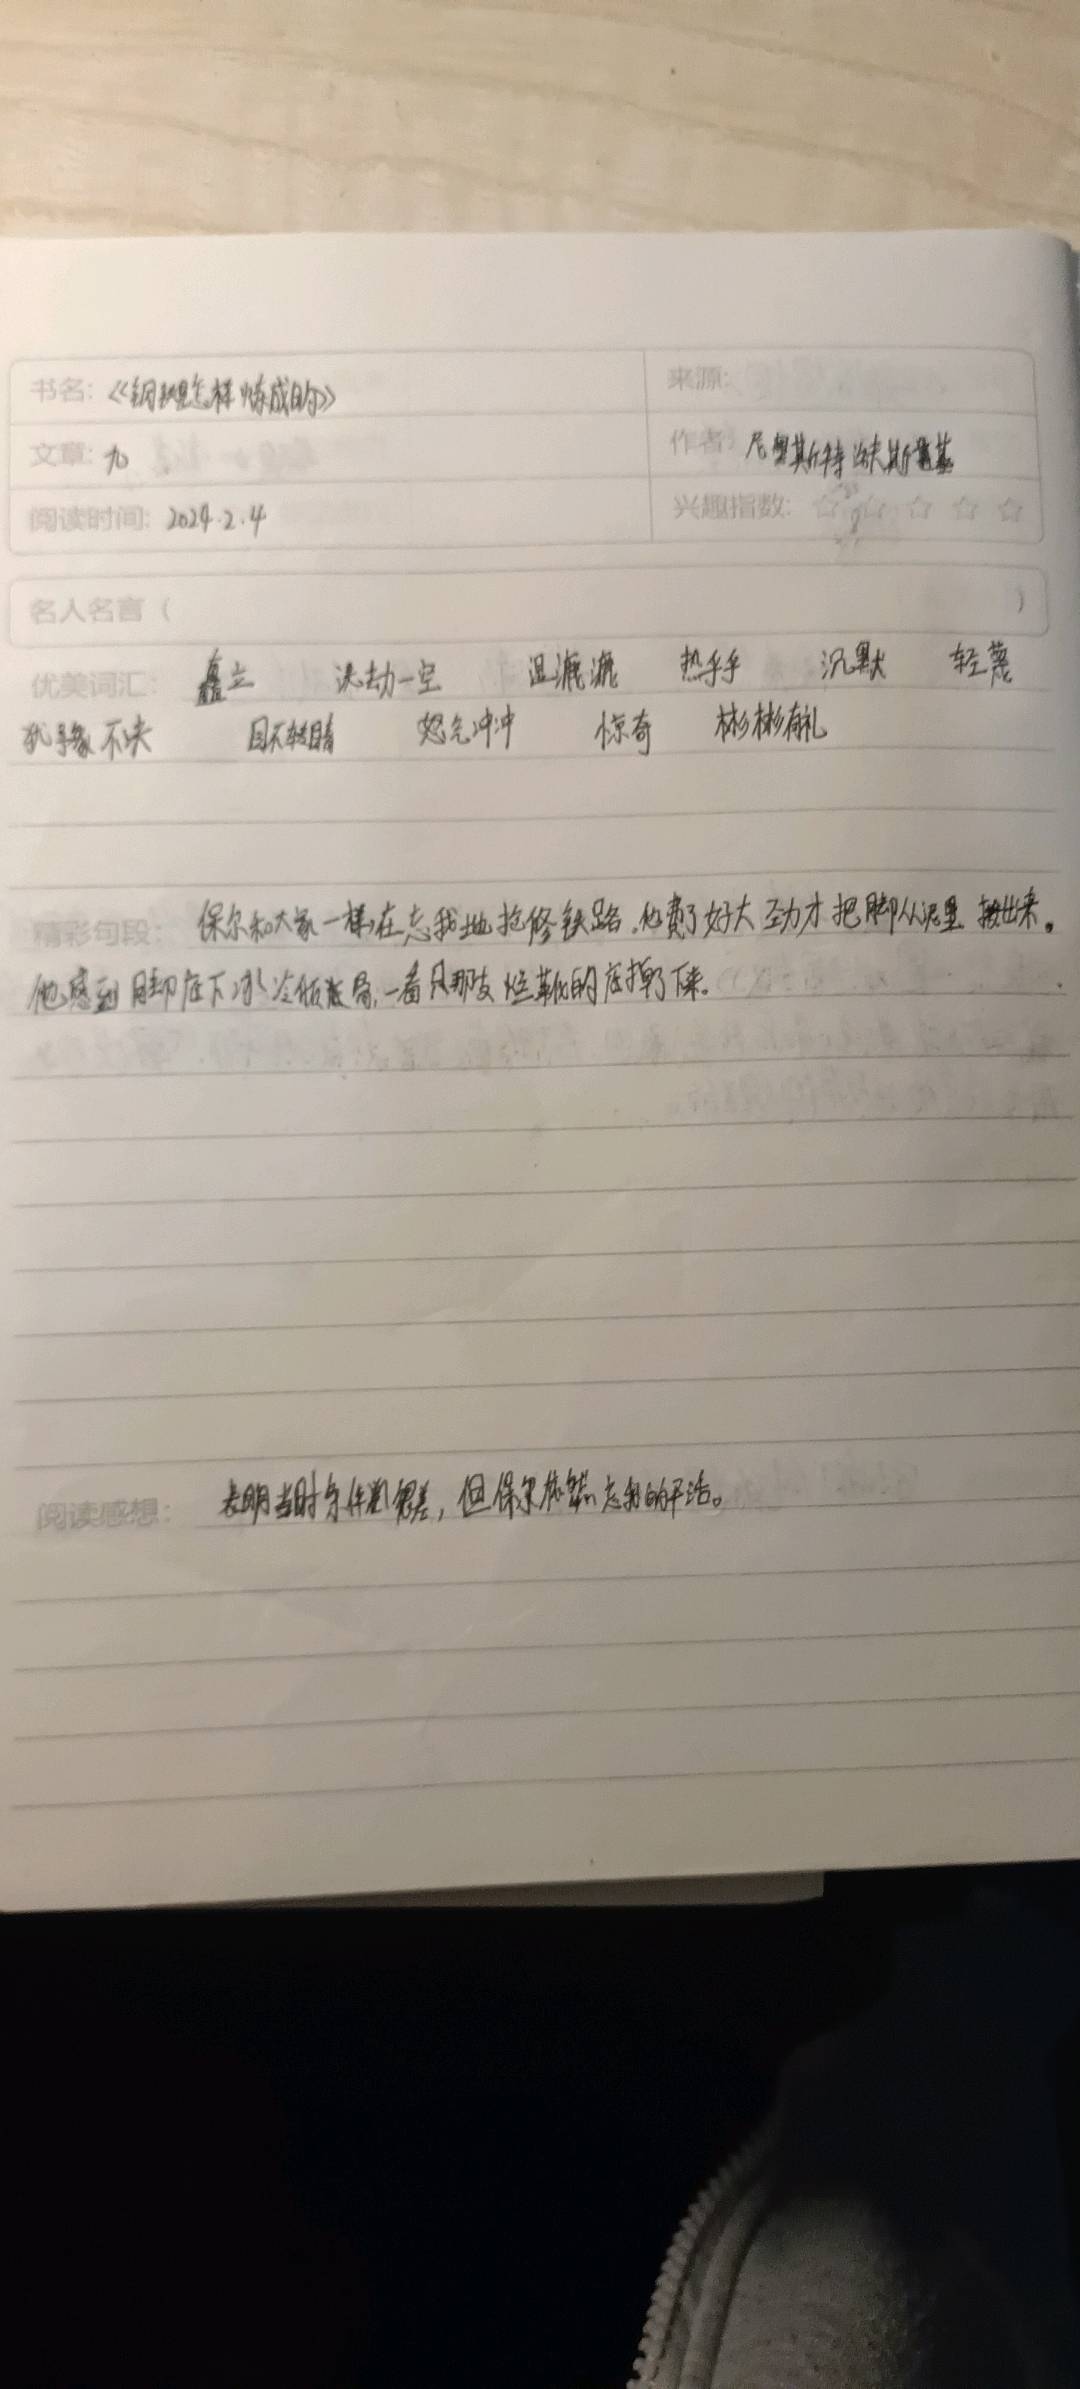 书名:《钢铁是怎样炼成的》
来源:
文章: 九
作者: 尼奥斯特洛夫斯基
阅读时间: 2024.2.4
兴趣指数: ☆ ☆ ☆ ☆ ☆
名人名言( )
优美词汇: 矗立 洗劫一空 湿漉漉 热乎乎 沉默 轻蔑
犹豫不决 目不转睛 怒气冲冲 惊奇 彬彬有礼
精彩句段: 保尔和大家一样在忘我地抢修铁路,他费了好大劲才把脚从泥里拔出来。
他感到脚底下冰冷彻骨,一看只那支烂靴的底掉了下来。
阅读感想: 表明当时条件很差,但保尔依然忘我的干活。